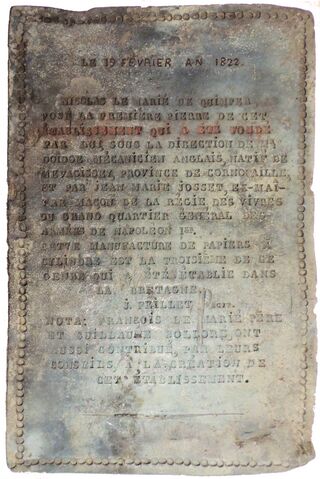 LE 19 FÉVRIER AN 1822.
NICOLAS LE MARIÉ DE QUIMPER, A
POSÉ LA PREMIÈRE PIERRE DE CET
ÉTABLISSEMENT QUI A ÉTÉ FONDÉ
PAR LUI, SOUS LA DIRECTION DE
MÉCANICIEN ANGLAIS, NATIF DE
MEVAGISSEY, PROVINCE DE CORNOUAILLE,
ET PAR JEAN MARIE JOSSET, EX-MAI-
TRE MAÇON DE LA RÉGIE DES VIVRES
DU GRAND QUARTIER GÉNÉRAL DES
ARMÉES DE NAPOLÉON 1ER.
CETTE MANUFACTURE DE PAPIERS À
CYLINDRE EST LA TROISIÈME DE CE
GENRE QUI A ÉTÉ ÉTABLIE DANS
LA BRETAGNE.
J. FEILLET
NOTA: FRANÇOIS LE MARIÉ PÈRE
ET GUILLAUME BOLLORÉ, ONT
AUSSI CONTRIBUÉ, PAR LEURS
CONSEILS, À LA CRÉATION DE
CET ÉTABLISSEMENT.